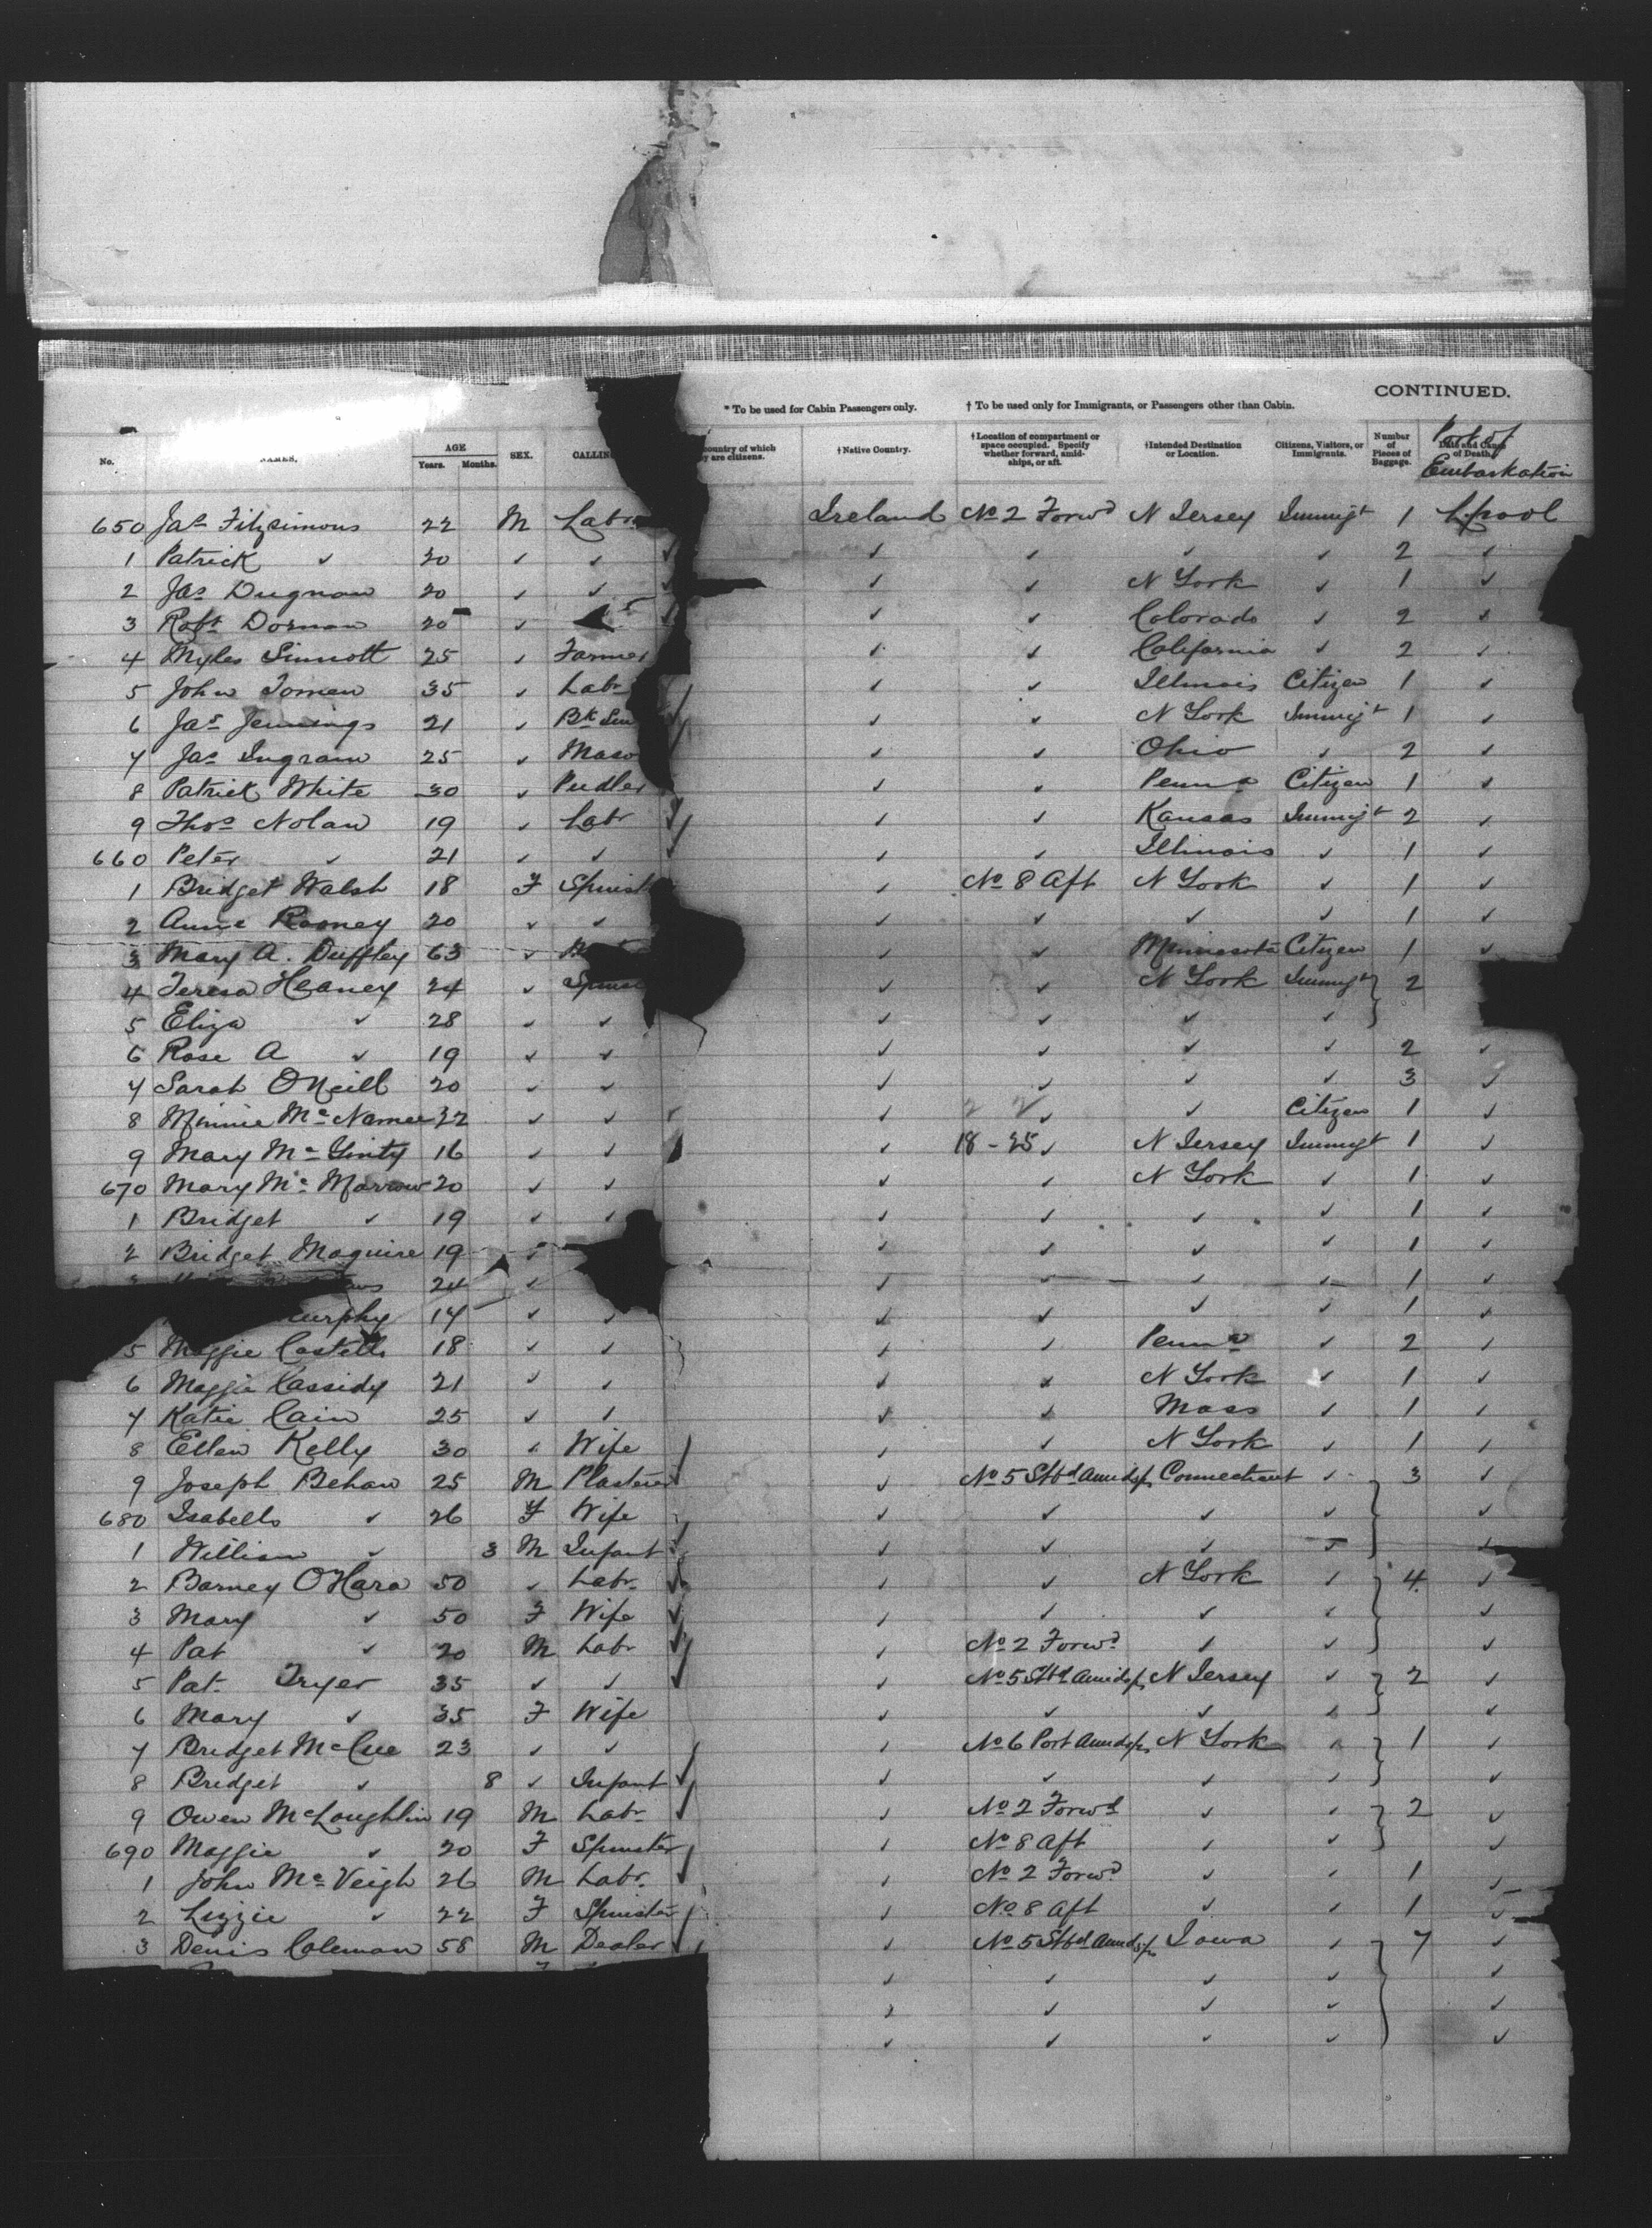 CONTINUED.
* To be used for Cabin Passengers only. † To be used only for Immigrants, or Passengers other than Cabin.
No. NAMES. AGE Years. Months. SEX. CALLIN country of which y are citizens. †Native Country. †Location of compartment or space occupied. Specify whether forward, amidships, or aft. †Intended Destination or Location. Citizens, Visitors, or Immigrants. Number of Pieces of Baggage. Date and Cause of Death. Port of Embarkation
650 Jas Fitzsimons 22 M Labr Ireland No 2 Forwd N Jersey Immigt 1 Lpool
1 Patrick ✓ 20 ✓ ✓ ✓ ✓ ✓ ✓ 2 ✓
2 Jas Dugnan 20 ✓ ✓ ✓ ✓ N York ✓ 1 ✓
3 Robt Dornan 20 ✓ ✓ ✓ Colorado ✓ 2 ✓
4 Myles Sinnott 25 ✓ Farmer ✓ ✓ California ✓ 2 ✓
5 John Tomen 35 ✓ Labr ✓ ✓ Illinois Citizen 1 ✓
6 Jas Jennings 21 ✓ Bk ✓ ✓ N York Immigt 1 ✓
7 Jas Ingram 25 ✓ Maso ✓ ✓ Ohio ✓ 2 ✓
8 Patrick White 30 ✓ Pudler ✓ ✓ Penna Citizen 1 ✓
9 Thos Nolan 19 ✓ Labr ✓ ✓ Kansas Immigt 2 ✓
660 Peter ✓ 21 ✓ ✓ ✓ ✓ Illinois ✓ 1 ✓
1 Bridget Walsh 18 F Spinst ✓ No 8 Aft N York ✓ 1 ✓
2 Annie Rooney 20 ✓ ✓ ✓ ✓ ✓ ✓ 1 ✓
3 Mary A. Duffley 63 ✓ ✓ ✓ Minnesota Citizen 1 ✓
4 Teresa Heaney 24 ✓ Spinst ✓ ✓ N York Immigt 2
5 Eliza ✓ 28 ✓ ✓ ✓ ✓ ✓ ✓
6 Rose A ✓ 19 ✓ ✓ ✓ ✓ ✓ ✓ 2 ✓
7 Sarah ONeill 20 ✓ ✓ ✓ ✓ ✓ ✓ 3 ✓
8 Minnie McNamee 32 ✓ ✓ ✓ ✓ ✓ Citizen 1 ✓
9 Mary McGinty 16 ✓ ✓ ✓ 18-25 ✓ N Jersey Immigt 1 ✓
670 Mary McMorrow 20 ✓ ✓ ✓ ✓ N York ✓ 1 ✓
1 Bridget ✓ 19 ✓ ✓ ✓ ✓ ✓ ✓ 1 ✓
2 Bridget Maguire 19 ✓ ✓ ✓ ✓ ✓ 1 ✓
24 ✓ ✓ ✓ ✓ ✓ 1 ✓
urphy 17 ✓ ✓ ✓ ✓ ✓ ✓ 1 ✓
5 Maggie Costello 18 ✓ ✓ ✓ ✓ Penna ✓ 2 ✓
6 Maggie Cassidy 21 ✓ ✓ ✓ ✓ N York ✓ 1 ✓
7 Katie Cain 25 ✓ ✓ ✓ ✓ Mass ✓ 1 ✓
8 Ellen Kelly 30 ✓ Wife ✓ ✓ N York ✓ 1 ✓
9 Joseph Behan 25 M Plasterer ✓ No 5 Stbd Amidsps Connecticut ✓ 3 ✓
680 Isabella ✓ 26 F Wife ✓ ✓ ✓ ✓ ✓
1 William ✓ 3 M Infant ✓ ✓ ✓ ✓ ✓
2 Barney OHara 50 ✓ Labr ✓ ✓ N York ✓ 4 ✓
3 Mary ✓ 50 F Wife ✓ ✓ ✓ ✓ ✓
4 Pat ✓ 20 M Labr ✓ No 2 Forwd ✓ ✓ ✓
5 Pat Fryer 35 ✓ ✓ ✓ No 5 Stbd Amidsps N Jersey ✓ 2 ✓
6 Mary ✓ 35 F Wife ✓ ✓ ✓ ✓ ✓
7 Bridget McCue 23 ✓ ✓ ✓ No 6 Port Amidsps N York ✓ 1 ✓
8 Bridget ✓ 8 ✓ Infant ✓ ✓ ✓ ✓ ✓
9 Owen McLoughlin 19 M Labr ✓ No 2 Forwd ✓ ✓ 2 ✓
690 Maggie ✓ 20 F Spinster ✓ No 8 Aft ✓ ✓ ✓
1 John McVeigh 26 M Labr ✓ No 2 Forwd ✓ ✓ 1 ✓
2 Lizzie ✓ 22 F Spinster ✓ No 8 Aft ✓ ✓ 1 ✓
3 Denis Coleman 58 M Dealer ✓ No 5 Stbd Amidsps Iowa ✓ 7 ✓
✓ ✓ ✓ ✓ ✓
✓ ✓ ✓ ✓ ✓
✓ ✓ ✓ ✓ ✓